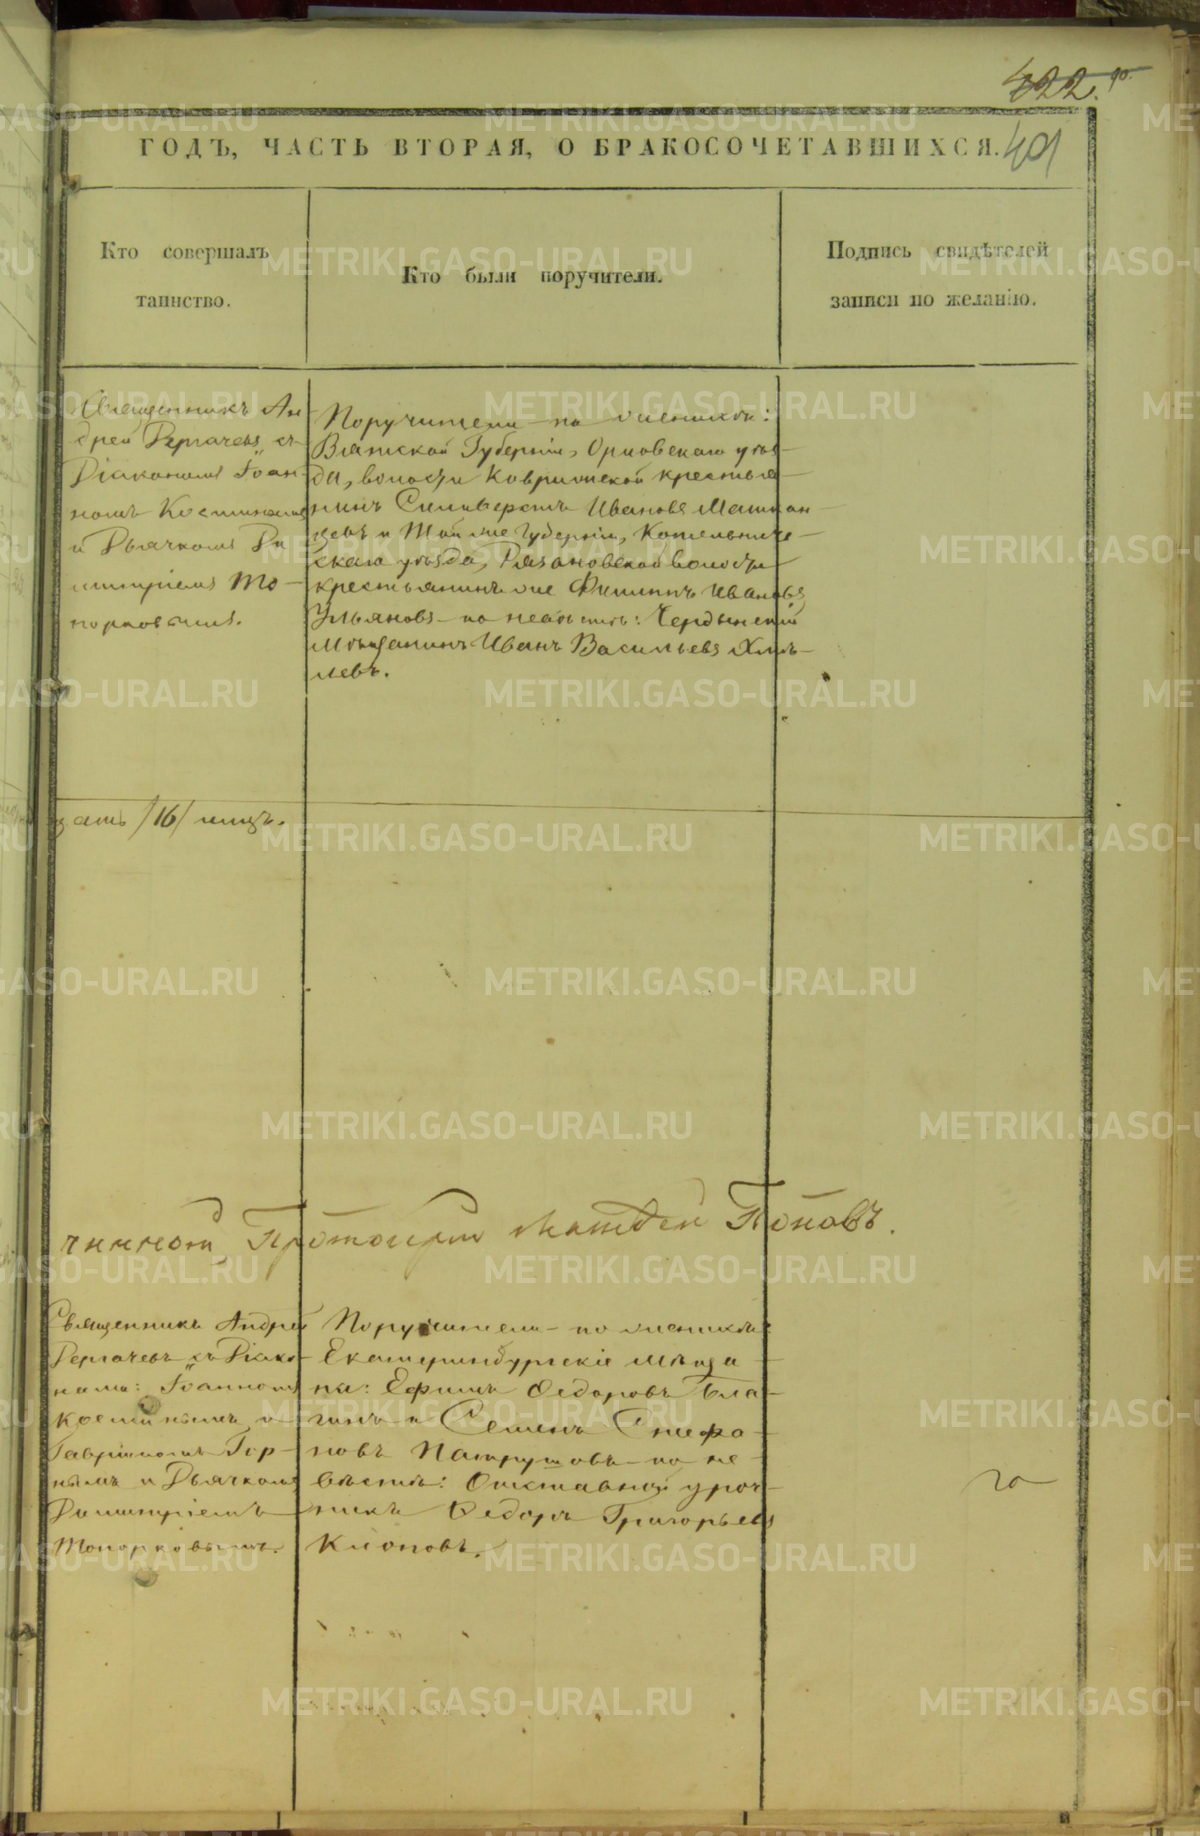 422. 90.
ГОДЪ, ЧАСТЬ ВТОРАЯ, О БРАКОСОЧЕТАВШИХСЯ. 401
Кто совершалъ
таинство.
Кто были поручители.
Подпись свидѣтелей
записи по желанію.
Священникъ Ан
дрей Дергачевъ съ
Діакономъ Іоан
номъ Космины́мъ
и Дьячкомъ Ди
митріемъ То-
порковымъ.
Поручители по женихѣ:
Вятской Губерніи, Орловскаго уѣз-
да, волости Ковринской крестья-
нинъ Сильверстъ Ивановъ Машкан
цевъ и той же губерніи, Котельниче-
скаго уѣзда, Рязановской волости
крестьянинъ же Филиппъ Ивановъ
Ульяновъ - по невѣстѣ: Чердынскій
Мѣщанинъ Иванъ Васильевъ Хмѣ-
левъ.
цать /16/ лицъ.
чинной Протоіерей Матвей Поповъ.
Священникъ Андрей
Дергачевъ съ Діако-
нами: Іоанномъ
Косминымъ и
Гавріиломъ Гор-
нымъ и Дьячкомъ
Димитріемъ
Топорковымъ.
Поручители - по женихѣ:
Екатеринбургскіе мѣща-
не: Ефимъ Ѳедоровъ Бла-
гинъ и Семенъ Стефа-
новъ Патрушовъ - по не-
вѣстѣ: Отставной уроч-
никъ Ѳедоръ Григорьевъ
Клоповъ.
METRIKI.GASO-URAL.RU